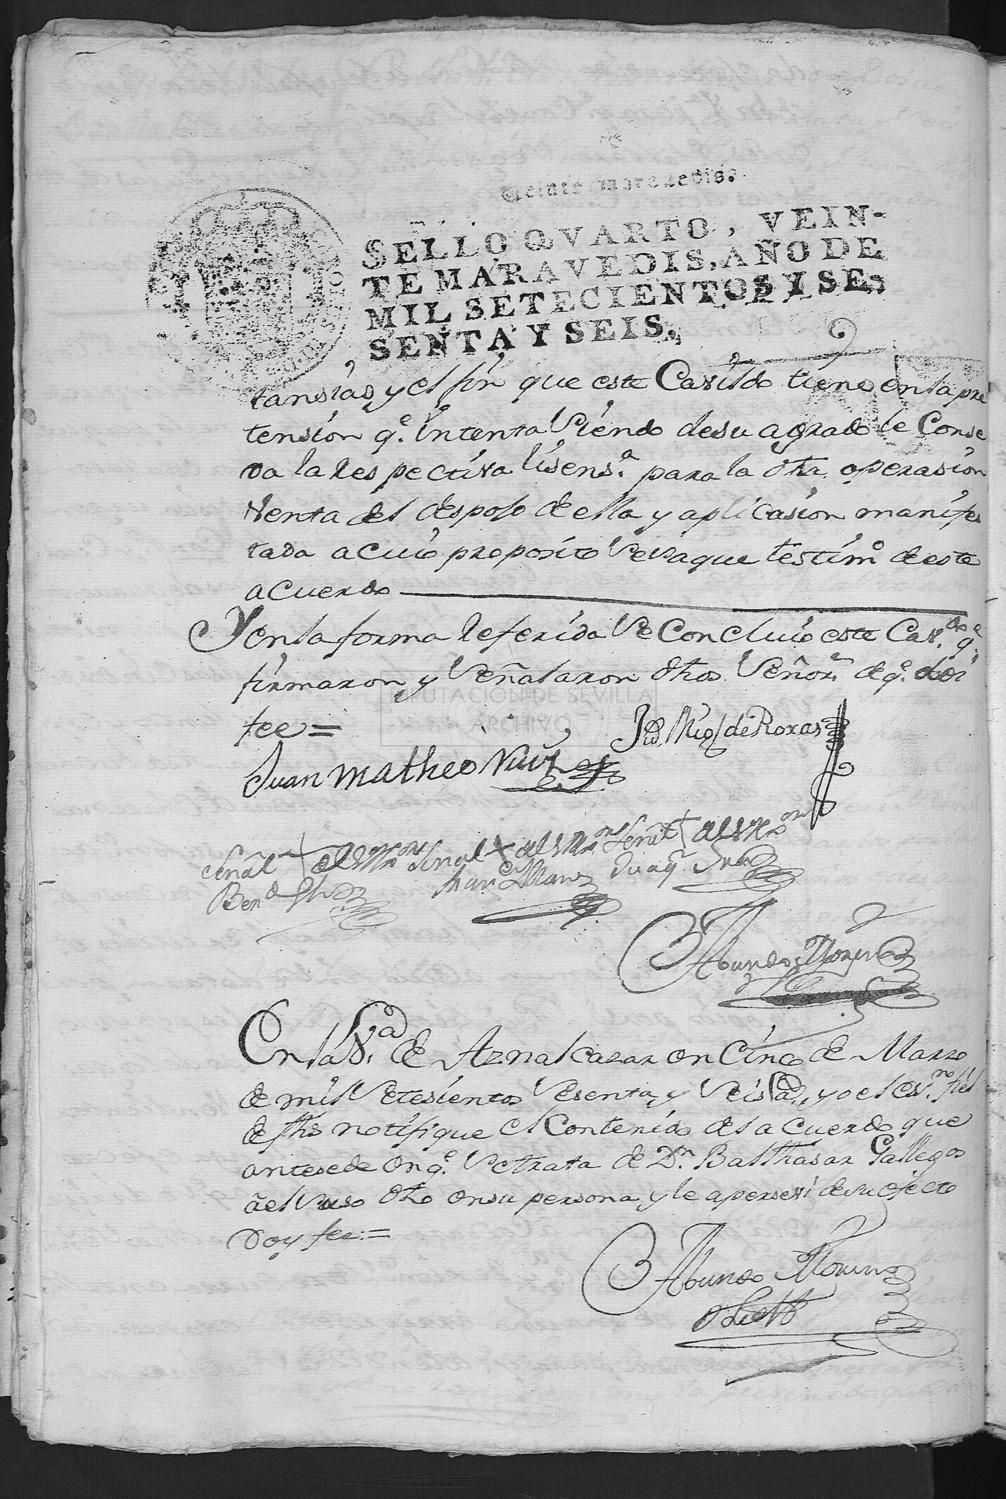 Veinte maravedis.
SELLO QVARTO, VEIN-
TE MARAVEDIS, AÑO DE
MIL SETECIENTOS Y SE-
SENTA Y SEIS.
tansias y el fin que este Cavildo tiene en la pre
tension q.e Yntenta Siendo de su agrado le Conse
da la respectiva lisens.a para la dha operasion
Venta del despojo de ella y aplicasion manifes
tada a cuio proposito se saque testim.o de este
acuerdo
Y en la forma referida se Concluió este Cav.do q.e
firmaron y señalaron dhos Señor.s de q.e doi
fee =
DIPUTACIÓN DE SEVILLA
ARCHIVO
Juan Matheo Ruiz
Migl de Roxas
Señal + del S.or Señal + del S.or Señal + del S.or
Ben.do
Fran.co Joaq.n
Abundo Moreno
En la V.a de Aznalcazar en Cinco de Marzo
de mil setesientos sesenta y seis a.s, yo el es.no fiel
de fhs notifique el Contenido del acuerdo que
antesede en q.e se trata de D.n Balthasar Gallegos
a el suso dho en su persona y le apersevi de su efecto
Doy fee =
Abundo Moreno